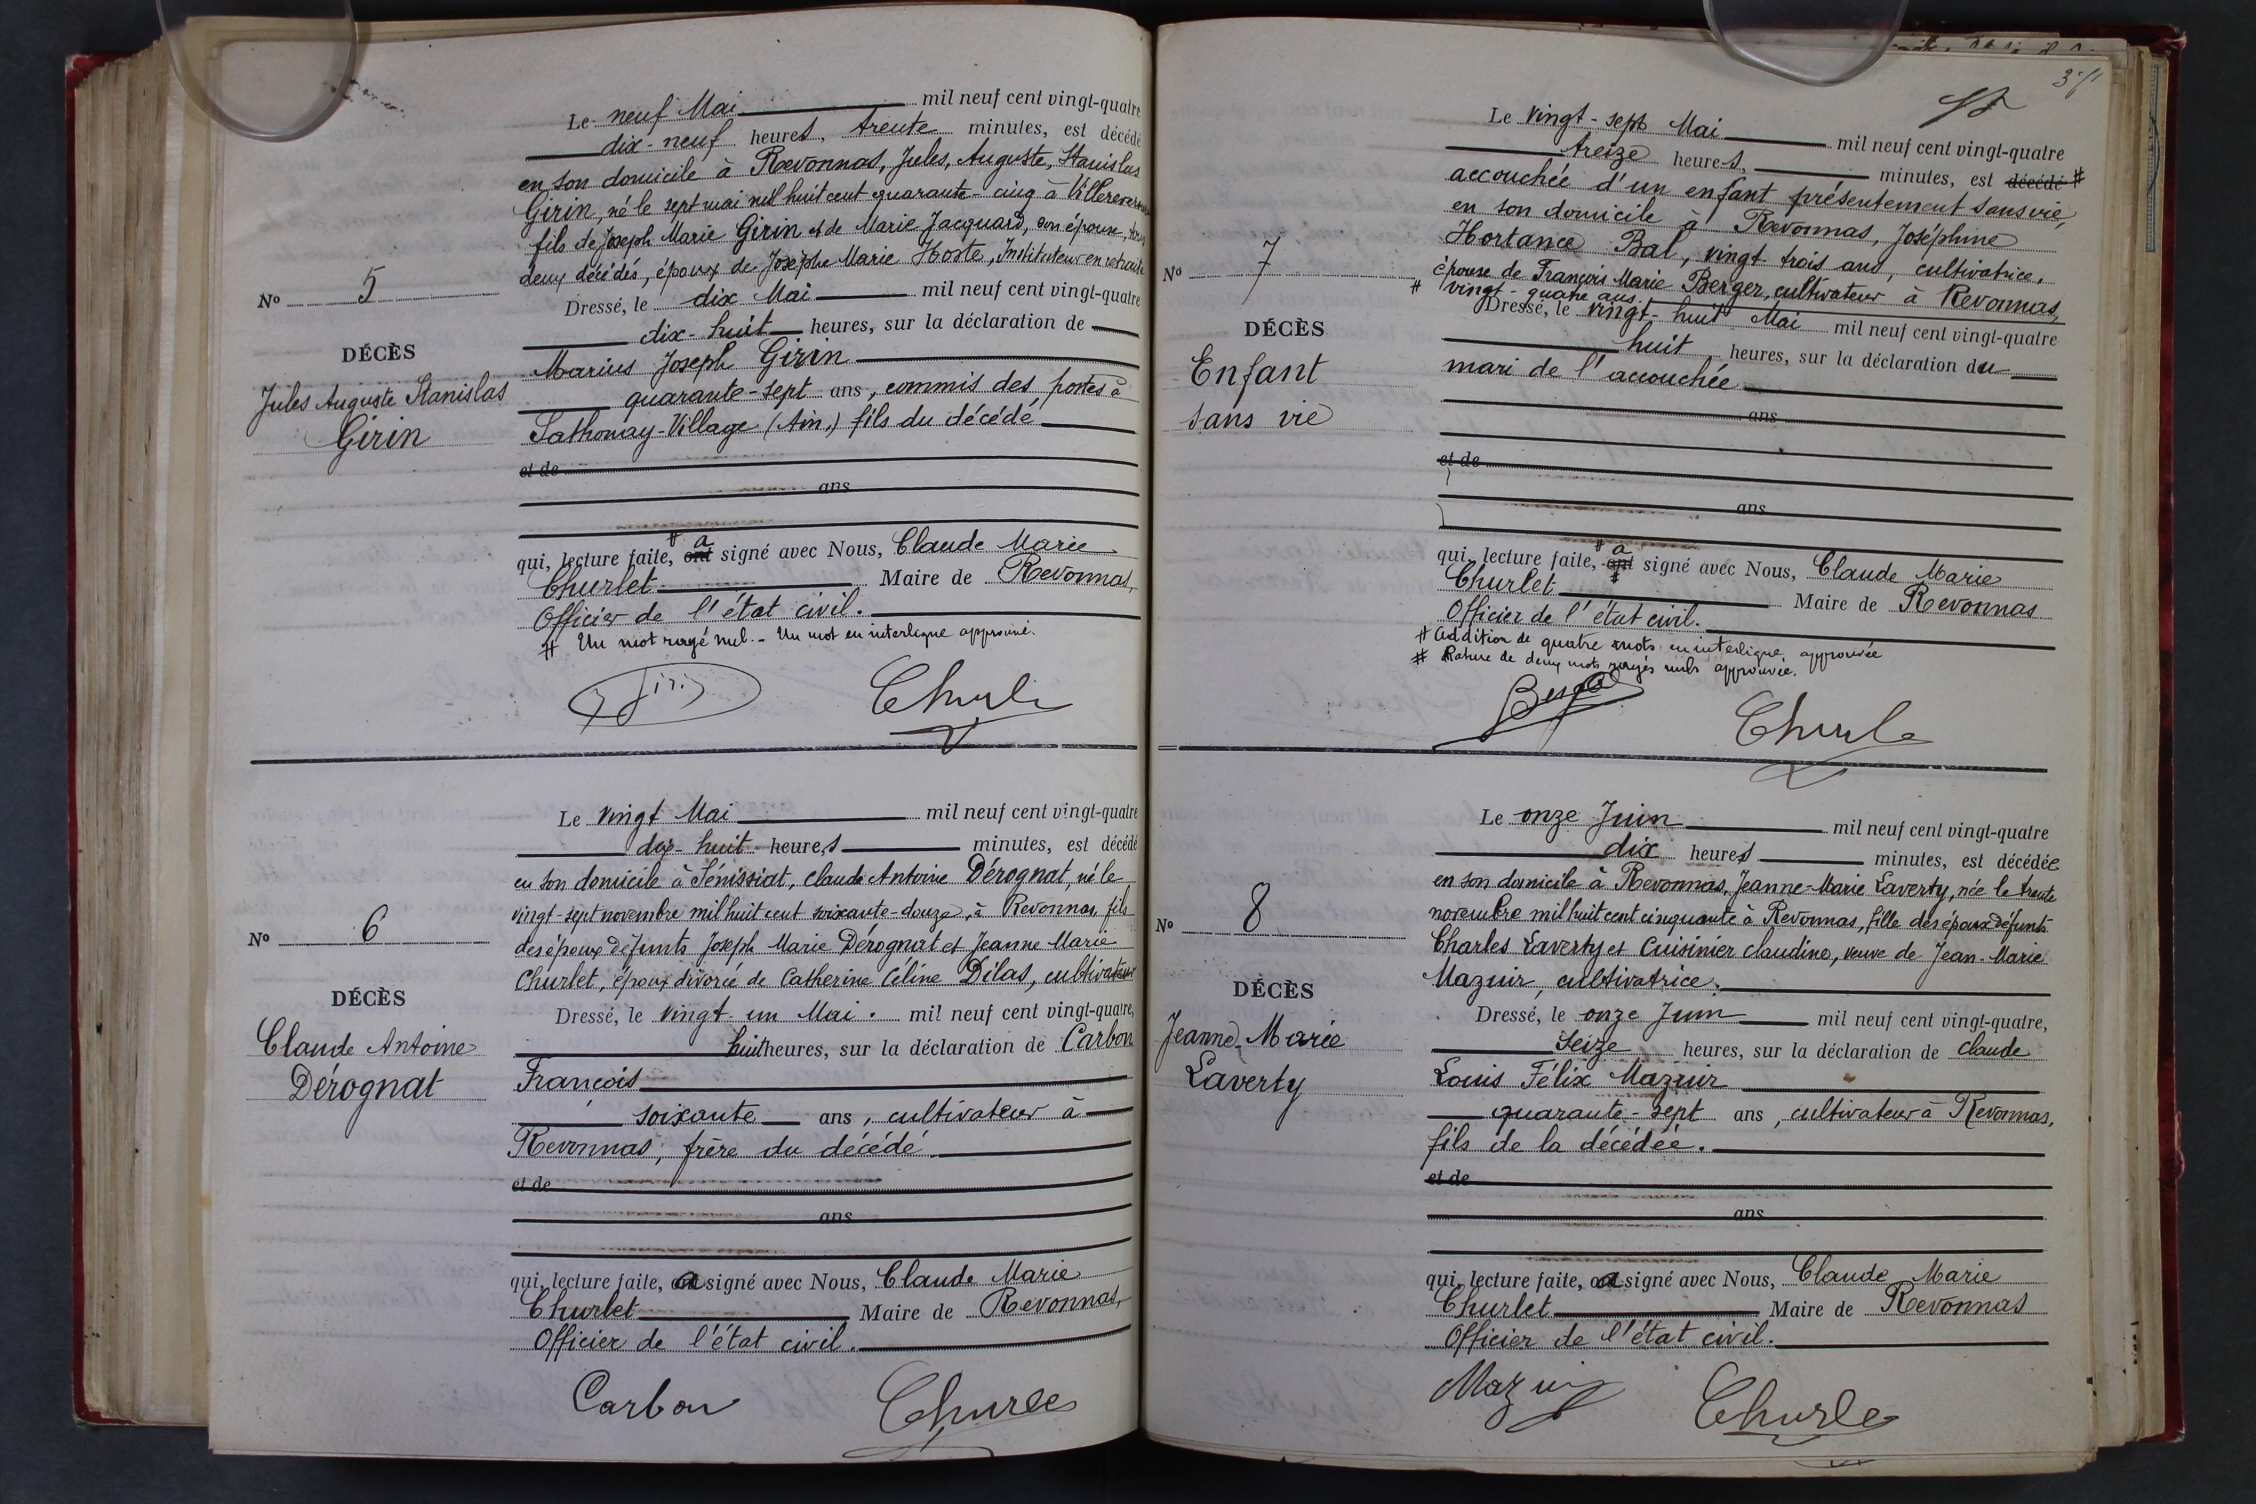 Le neuf Mai mil neuf cent vingt-quatre
dix-neuf heures, trente minutes, est décédé
en son domicile à Revonnas, Jules, Auguste, Stanislas
Girin, né le sept mai mil huit cent quarante-cinq à
fils de Joseph Marie Girin et de Marie Jacquard, son épouse, tous
deux décédés, époux de Josèphe Marie Hoste, Instituteur en retraite
No 5
Dressé, le dix Mai mil neuf cent vingt-quatre
dix-huit heures, sur la déclaration de
DÉCÈS
Marius Joseph Girin
Jules Auguste Stanislas
quarante-sept ans, commis des postes à
Girin
Sathonay-Village (Ain.) fils du décédé
et de
ans
qui, lecture faite, # a ont signé avec Nous, Claude Marie
Churlet Maire de Revonnas,
Officier de l'état civil.
# Un mot rayé nul. - Un mot en interligne approuvé.
Churle
Le vingt Mai mil neuf cent vingt-quatre
dix-huit heures minutes, est décédé
en son domicile à Sénissiat, Claude Antoine Dérognat, né le
vingt-sept novembre mil huit cent soixante-douze, à Revonnas, fils
No 6
des époux défunts Joseph Marie Dérognat et Jeanne Marie
Churlet, époux divorcé de Catherine Céline Dilas, cultivateur
DÉCÈS
Dressé, le vingt-un Mai. mil neuf cent vingt-quatre,
Claude Antoine
huit heures, sur la déclaration de Carbon
Dérognat
François
soixante ans, cultivateur à
Revonnas, frère du décédé
et de
ans
qui, lecture faite, a signé avec Nous, Claude Marie
Churlet Maire de Revonnas,
Officier de l'état civil.
Carbon Churle
371
Le vingt-sept Mai mil neuf cent vingt-quatre
treize heures, minutes, est décédé #
accouchée d'un enfant présentement sans vie,
en son domicile à Revonnas, Joséphine
Hortance Bal, vingt trois ans, cultivatrice,
No 7
épouse de François Marie Berger, cultivateur à Revonnas,
# vingt-quatre ans.
Dressé, le vingt-huit Mai mil neuf cent vingt-quatre
DÉCÈS
huit heures, sur la déclaration du
Enfant
mari de l'accouchée
sans vie
ans
et de
ans
qui, lecture faite, # a ont # signé avec Nous, Claude Marie
Churlet Maire de Revonnas
Officier de l'état civil.
# Addition de quatre mots en interligne approuvée
# Rature de deux mots rayés nuls approuvée.
Berger
Churle
Le onze Juin mil neuf cent vingt-quatre
dix heures minutes, est décédée
en son domicile à Revonnas, Jeanne-Marie Laverty, née le trente
novembre mil huit cent cinquante à Revonnas, fille des époux défunts
No 8
Charles Laverty et Cuisinier Claudine, veuve de Jean-Marie
Mazuir, cultivatrice.
DÉCÈS
Dressé, le onze Juin mil neuf cent vingt-quatre,
Jeanne-Marie
Seize heures, sur la déclaration de Claude
Laverty
Louis Félix Mazuir
quarante-sept ans, cultivateur à Revonnas,
fils de la décédée.
et de
ans
qui, lecture faite, a signé avec Nous, Claude Marie
Churlet Maire de Revonnas
Officier de l'état civil.
Mazuir Churle